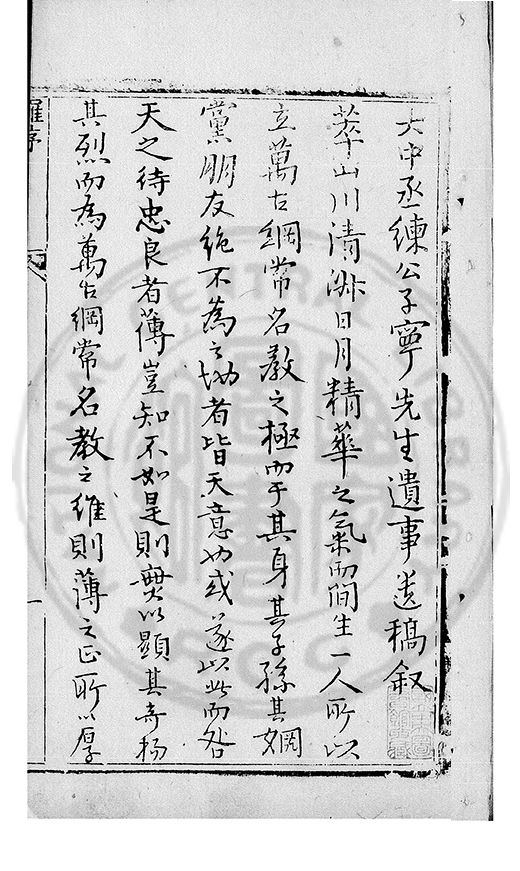 大中丞練公子寧先生遺事遺稿叙
萃山川清淑日月精華之氣而間生一人所以
立萬古綱常名教之極而于其身其子孫其姻
黨朋友絶不為之地者皆天意也或遂以此而咎
天之待忠良者薄豈知不如是則無以顯其奇揚
其烈而為萬古綱常名教之維則薄之正所以厚
羅序
一